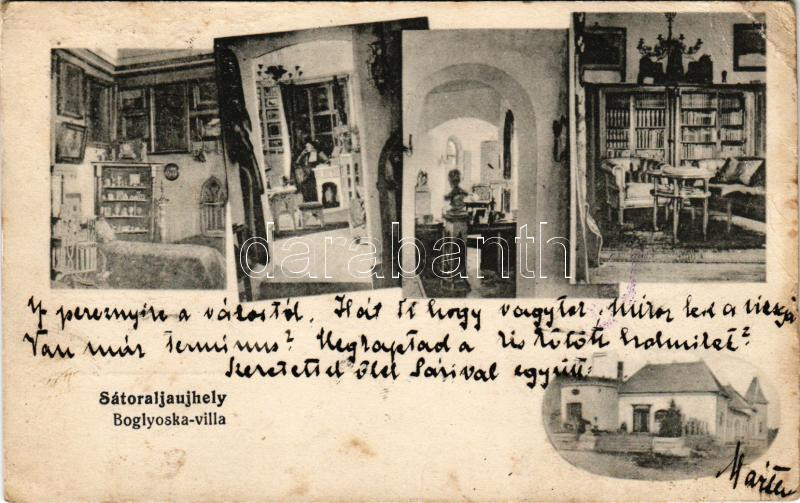 darabanth
5 percznyire a várostól. Hát Ti hogy vagytok, Mikor lesz a
Van már terminus? Megkaptad a kis kötött holmikat?
Szeretettel ölel Sárival együtt
Sátoraljaujhely
Boglyoska-villa